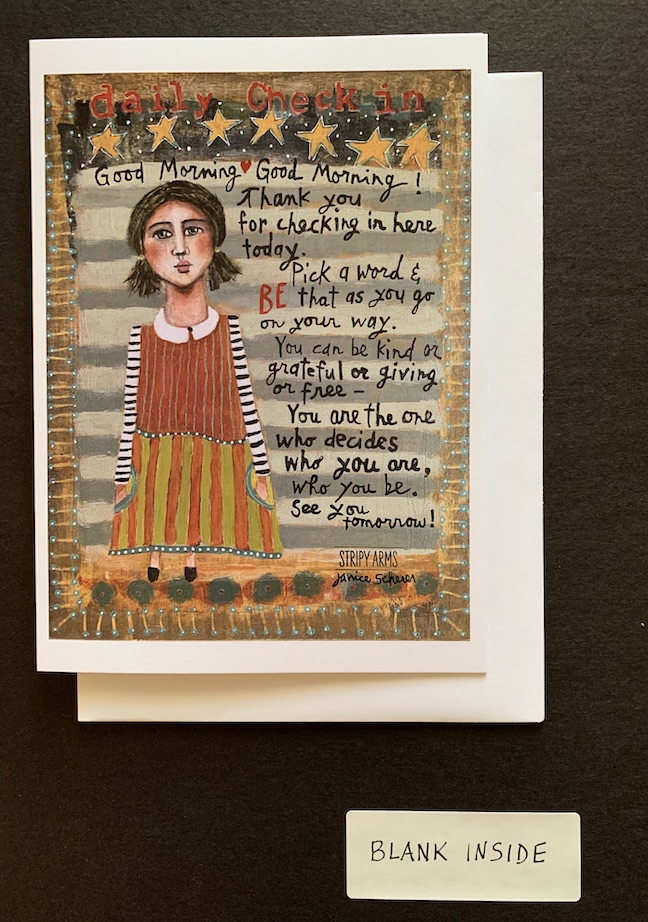 daily Check in
Good Morning♥Good Morning!
Thank you
for checking in here
today.
Pick a word &
BE that as you go
on your way.
You can be kind or
grateful or giving
or free –
You are the one
who decides
who you are,
who you be.
See you
tomorrow!
STRIPY ARMS
Janice Scherer
BLANK INSIDE